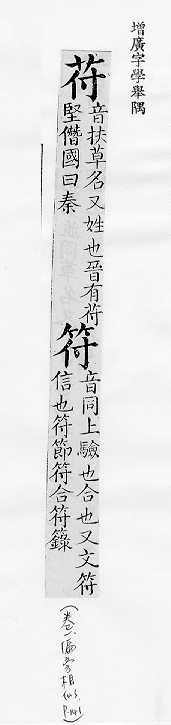 增廣字學舉隅
苻
音扶草名又姓也晉有苻
堅僭國曰秦
符
音同上驗也合也又文符
信也符節符合符籙
(卷二、偏旁相似、P.141)